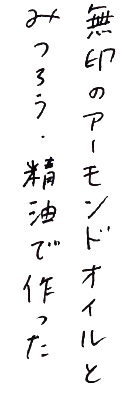 無印のアーモンドオイルと
みつろう・精油で作った